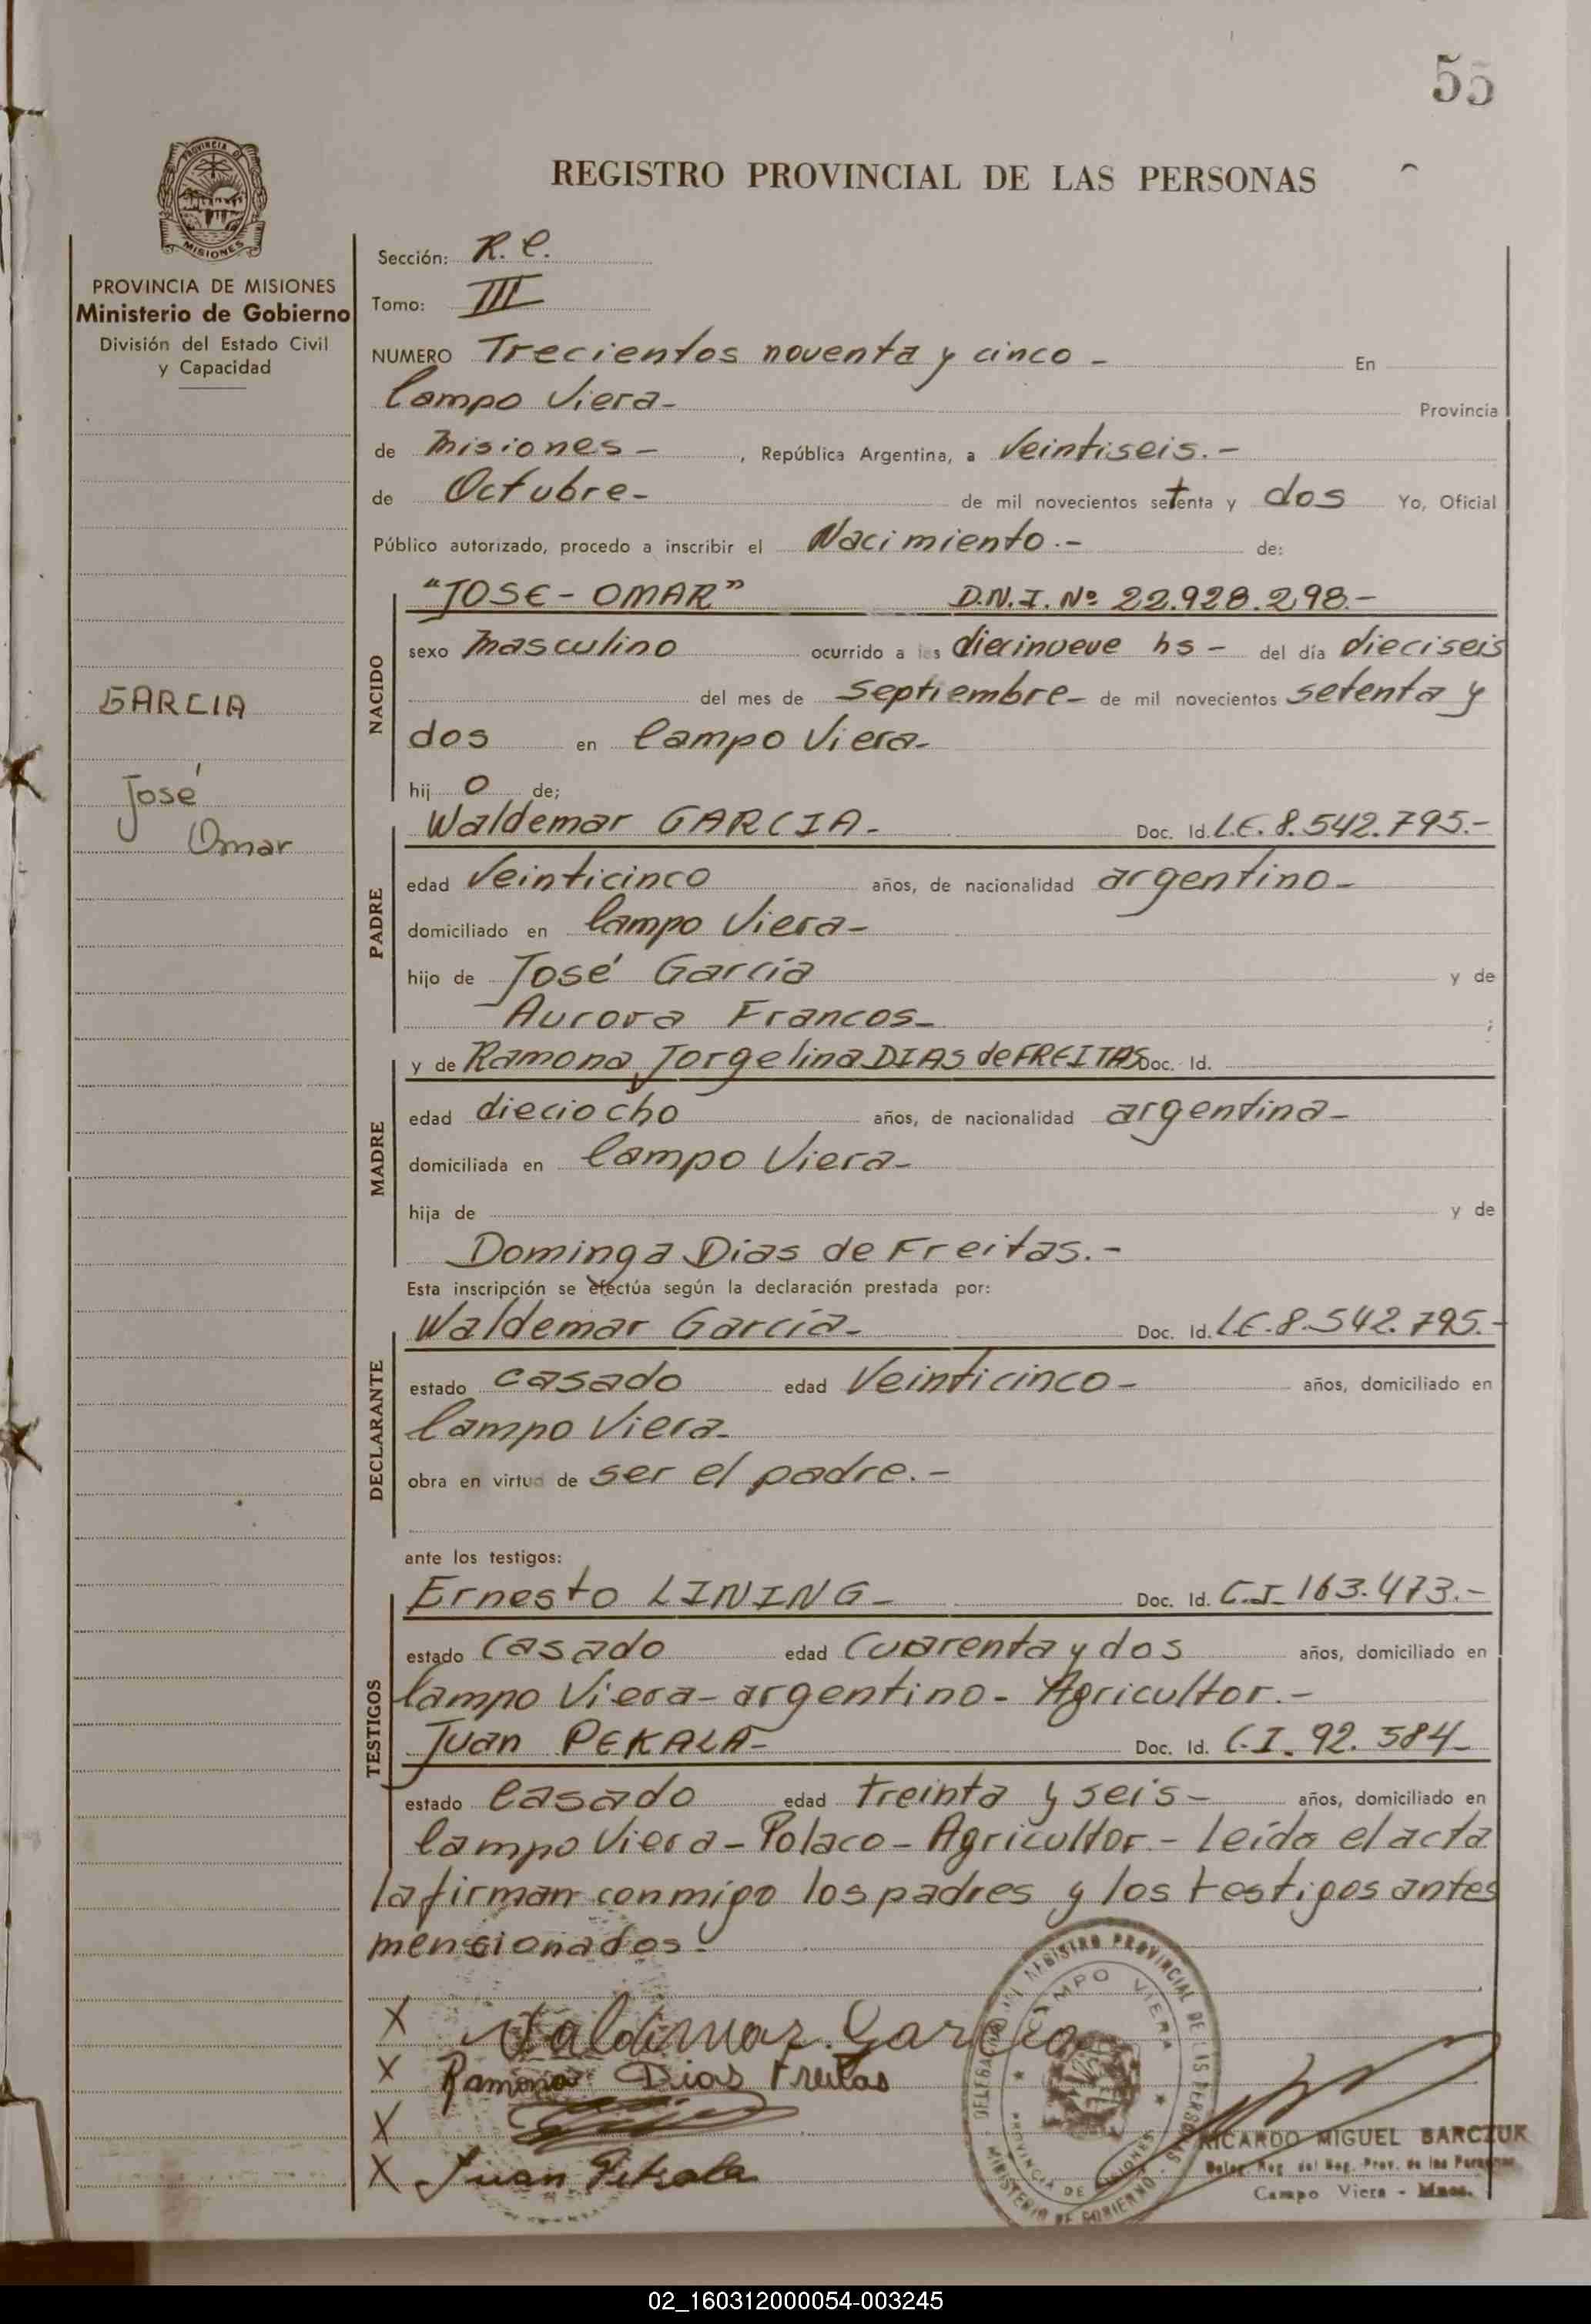 55
REGISTRO PROVINCIAL DE LAS PERSONAS
PROVINCIA DE MISIONES
PROVINCIA DE MISIONES
Ministerio de Gobierno
División del Estado Civil
y Capacidad
GARCIA
José
Omar
Sección: R. C.
Tomo: III
NUMERO Trecientos noventa y cinco - En
Campo Viera- Provincia
de Misiones - , República Argentina, a Veintiseis.-
de Octubre- de mil novecientos setenta y dos Yo, Oficial
Público autorizado, procedo a inscribir el Nacimiento.- de:
NACIDO
"JOSE - OMAR" D.N.I. Nº 22.928.298.-
sexo Masculino ocurrido a las diecinueve hs - del día dieciseis
del mes de Septiembre- de mil novecientos setenta y
dos en Campo Viera-
hij o de;
PADRE
Waldemar GARCIA- Doc. Id. L.E. 8.542.795.-
edad Veinticinco años, de nacionalidad argentino-
domiciliado en Campo Viera-
hijo de José García y de
Aurora Francos- ;
MADRE
y de Ramona Jorgelina DIAS de FREITAS Doc. Id.
edad dieciocho años, de nacionalidad argentina-
domiciliada en Campo Viera-
hija de y de
Dominga Dias de Freitas.-
Esta inscripción se efectúa según la declaración prestada por:
DECLARANTE
Waldemar García- Doc. Id. L.E. 8.542.795.-
estado casado edad Veinticinco- años, domiciliado en
Campo Viera-
obra en virtud de ser el padre.-
ante los testigos:
TESTIGOS
Ernesto LINING- Doc. Id. C.I- 163.473.-
estado Casado edad Cuarenta y dos años, domiciliado en
Campo Viera- argentino- Agricultor.-
Juan PEKALA- Doc. Id. C.I. 92.584-
estado Casado edad treinta y seis- años, domiciliado en
Campo Viera- Polaco- Agricultor.- Leída el acta
la firman conmigo los padres y los testigos antes
mencionados.-
X Valdemar Garcia
X Ramona Dias Freitas
X
X Juan Pekala
DELEGACION REGISTRO PROVINCIAL DE LAS PERSONAS
CAMPO VIERA
PROVINCIA DE MISIONES
MINISTERIO DE GOBIERNO
RICARDO MIGUEL BARCZUK
Deleg. Reg. del Reg. Prov. de las Personas
Campo Viera - Mnes.
02_160312000054-003245